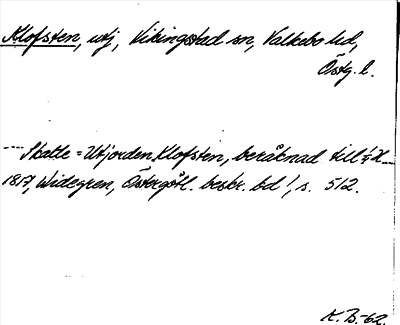 Klofsten, utj, Vikingstad sn, Valkebo hd,
Östg. l.
--- Skatte = Utjorden Klofsten, beräknad till
1817, Widegren, Östergötl. beskr. bd 1, s. 512.
K. B. -62.